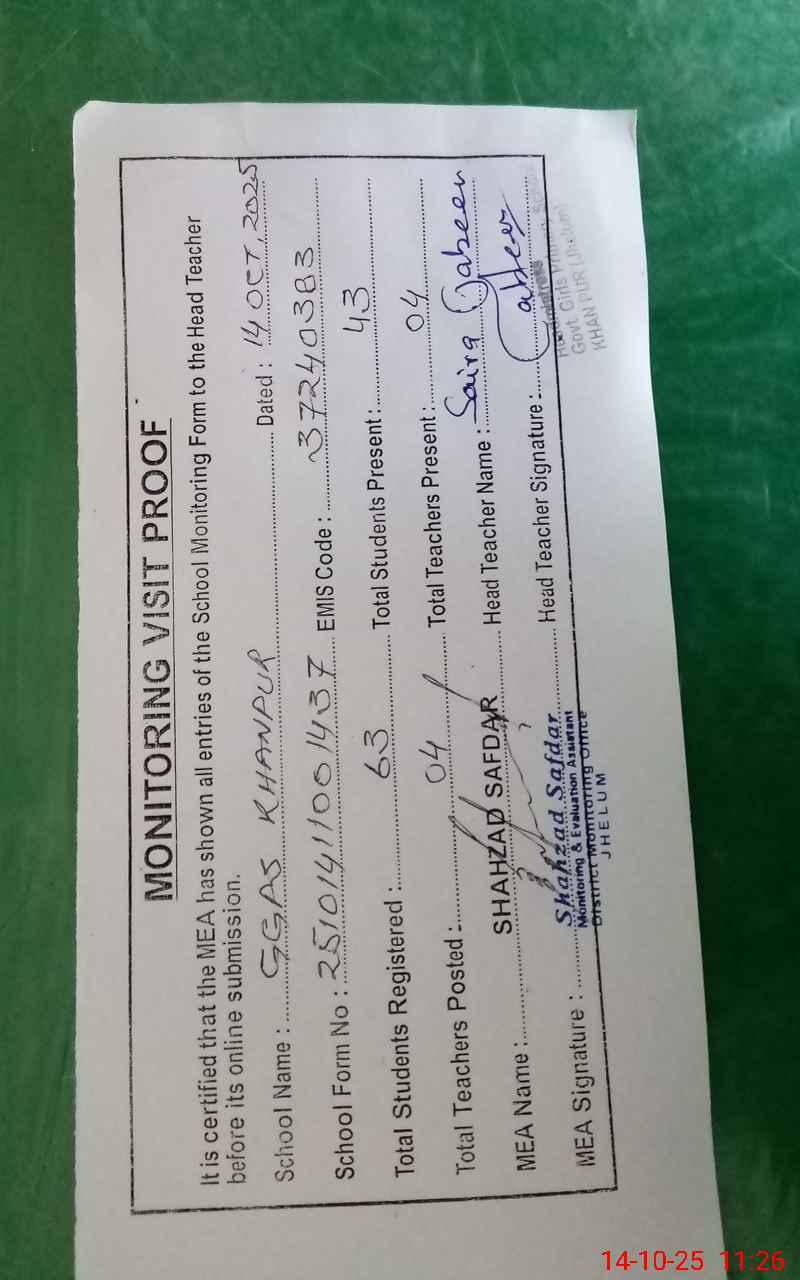 MONITORING VISIT PROOF
It is certified that the MEA has shown all entries of the School Monitoring Form to the Head Teacher
before its online submission.
School Name : GGPS KHANPUR Dated : 14 OCT, 2025
School Form No : 25101411001437 EMIS Code : 37240383
Total Students Registered : 63 Total Students Present : 43
Total Teachers Posted : 04 Total Teachers Present : 04
MEA Name : SHAHZAD SAFDAR Head Teacher Name : Saira Jabeen
MEA Signature : Head Teacher Signature : Jabeen
Shahzad Safdar
Monitoring & Evaluation Assistant
District Monitoring Office
JHELUM
Govt. Girls School
KHAN PUR (Jhelum)
14-10-25 11:26